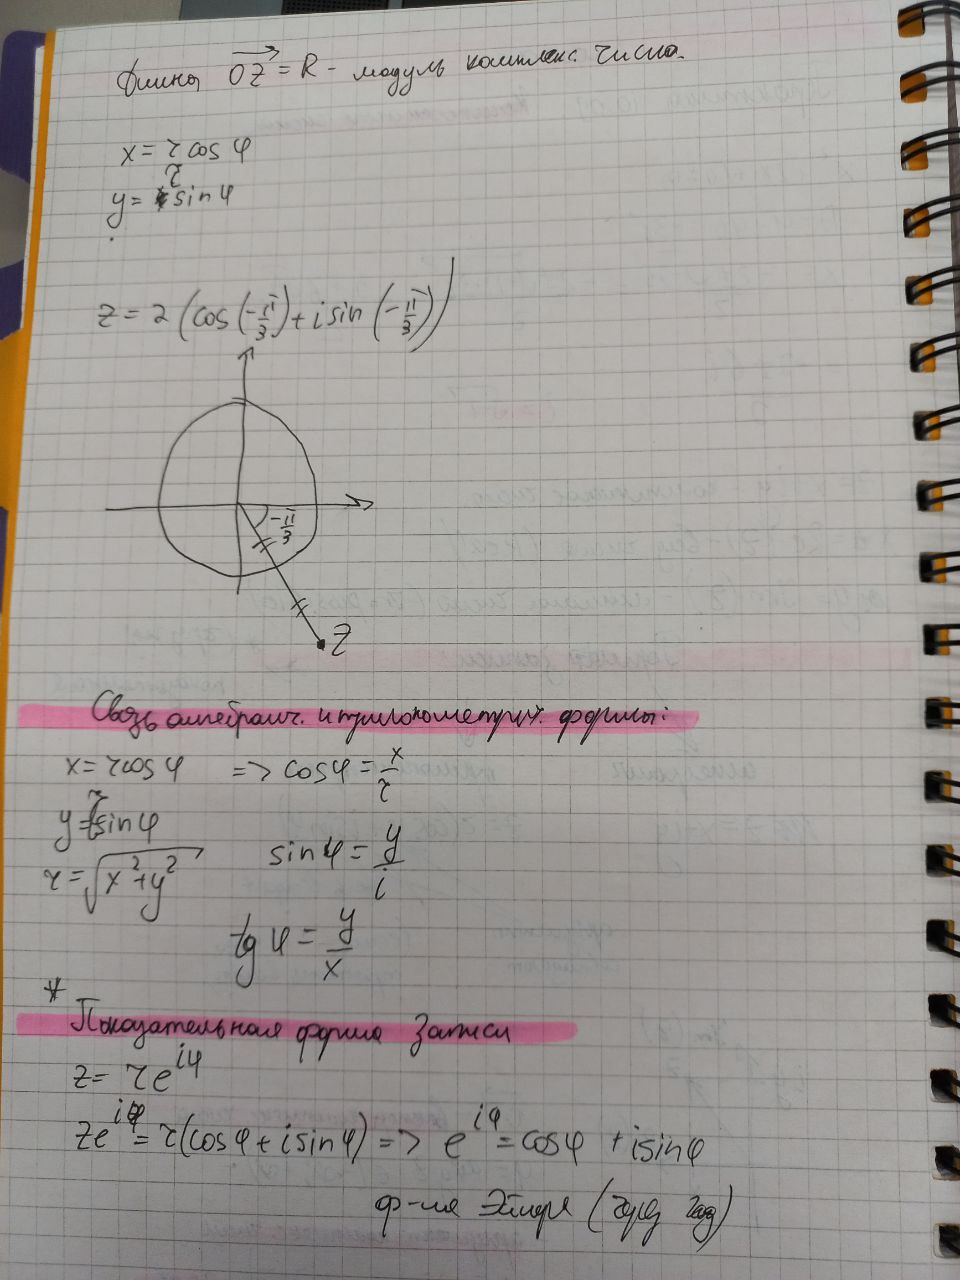 Длина OZ = R - модуль комплекс. числа.
x = r cos φ
y = r sin φ
z = 2 (cos (-π/3) + i sin (-π/3))
-π/3
Z
Связь алгебраич. и тригонометрич. формы:
x = r cos φ => cos φ = x/r
y = r sin φ
sin φ = y/i
r = √(x² + y²)
tg φ = y/x
* Показательная форма записи
z = r e^{iφ}
ze^{iφ} = r(cos φ + i sin φ) => e^{iφ} = cos φ + i sin φ
ф-ла Эйлера